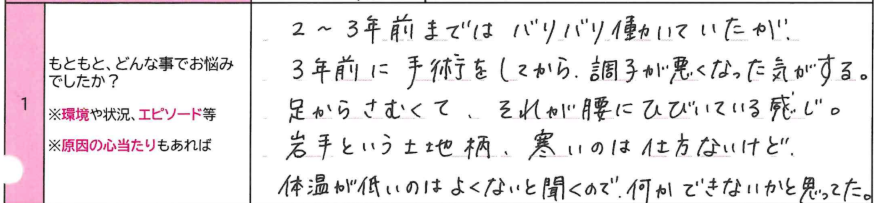 1
もともと、どんな事でお悩み
でしたか？
※環境や状況、エピソード等
※原因の心当たりもあれば
2～3年前まではバリバリ働いていたが、
3年前に手術をしてから、調子が悪くなった気がする。
足からさむくて、それが腰にひびいている感じ。
岩手という土地柄、寒いのは仕方ないけど、
体温が低いのはよくないと聞くので、何かできないかと思ってた。